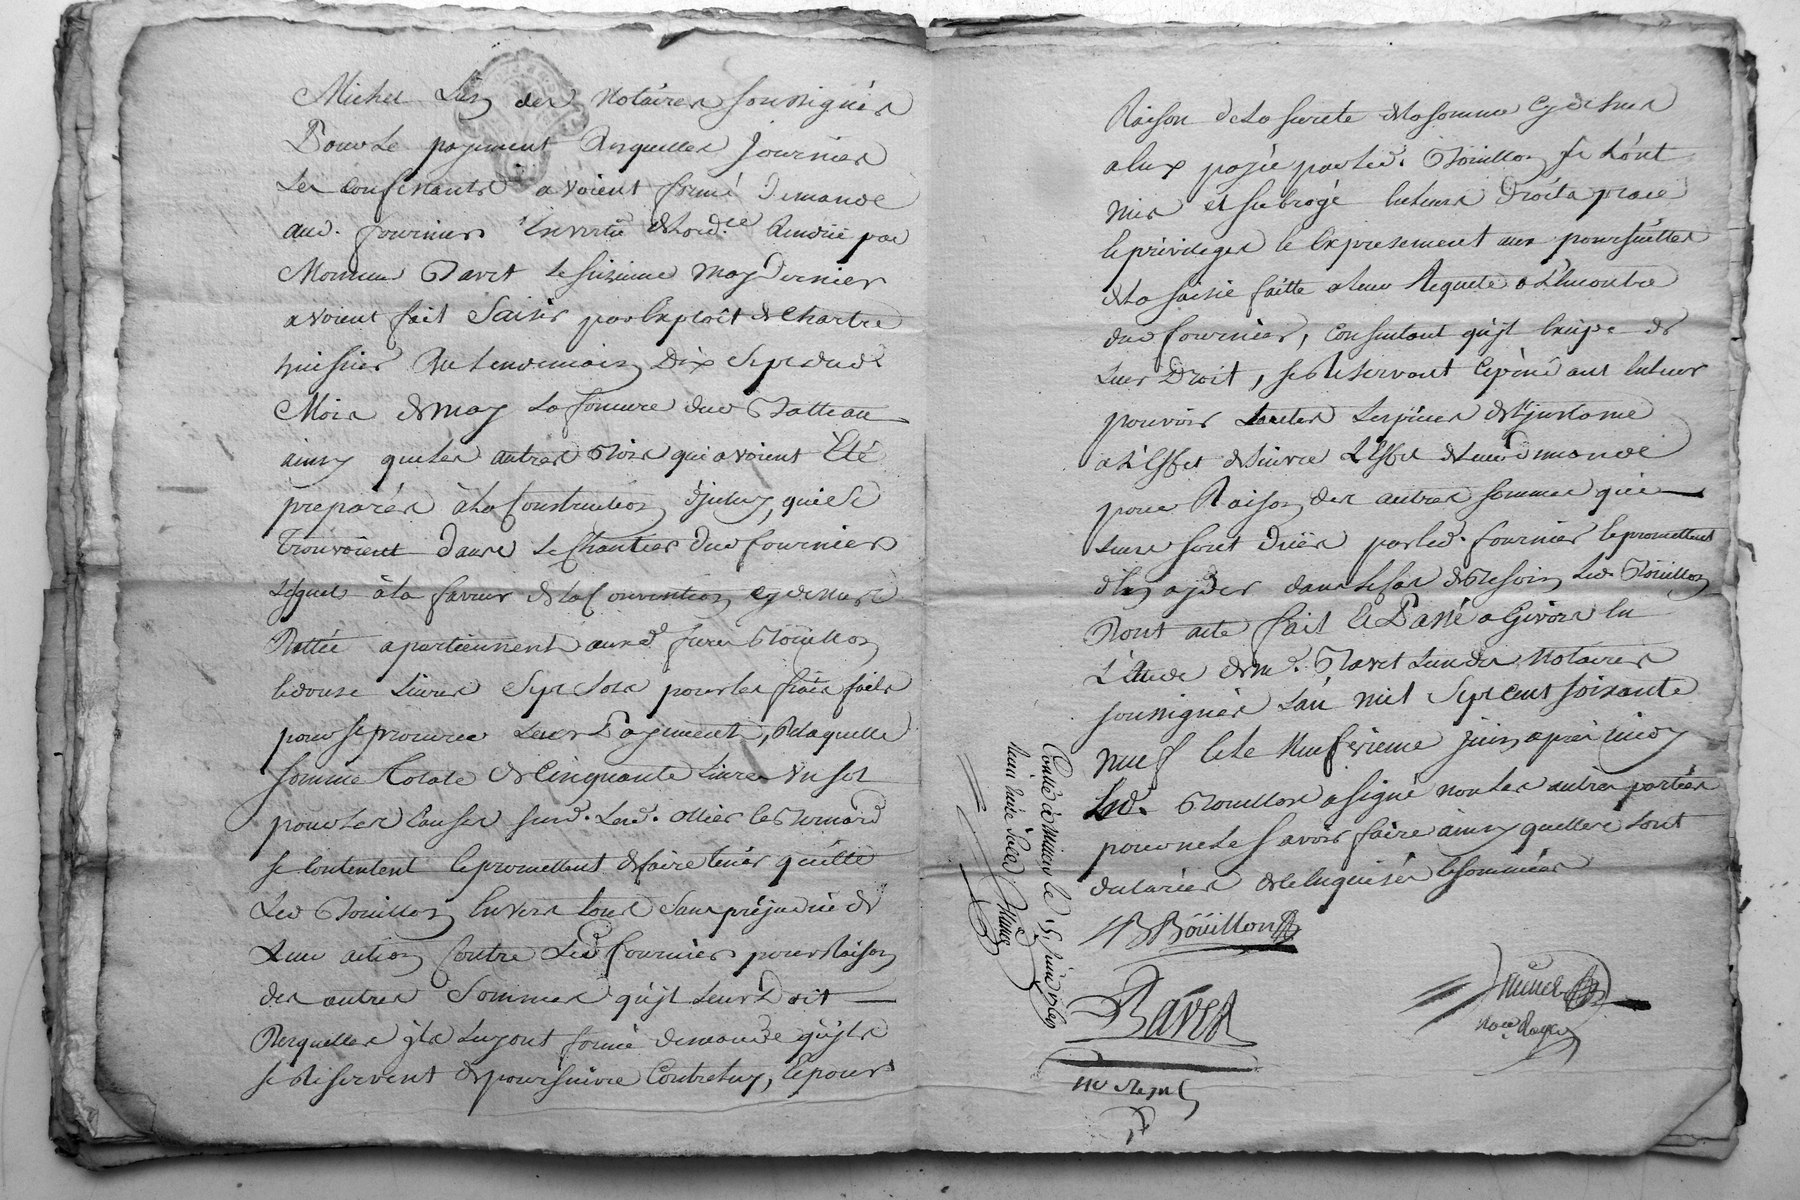 Michel L'un des Notaires soussignés
Pour le payement desquelles journées
Les confessants avoient formé demande
aud. fournier En vertu de lord.ce Rendüe par
Monsieur Bavet le seizieme may dernier
avoient fait Saisir par Exploit de Chartre
huissier du Lendemain Dix Sept dud.
Mois de may La fonsure dud Batteau
ainsy que les autres Bois qui avoient Eté
preparés à la Construction d'jceluy, qui se
trouvoient dans le Chantier dud fournier
Lesquels à la faveur de la Convention cy dessus
Nottée apartiennent auxd. freres Boüillon
et douze Livres Sept Sols pour les frais faits
pour se procurer Leur Payement, De laquelle
somme totale de Cinquante Livres un sol
pour les Causes susd. Led. ollier et Bernard
se Contentent et promettent de faire tenir quitte
Led Boüillon Envers tous Sans préjudice de
Leur action Contre Led fournier pour Raison
des autres Sommes qu'jl leur Doit
Desquelles jls Luy ont formé demande qu'jls
se Reservent de poursuivre Contre luy, Et pour
Raison de la sureté de la somme cy dessus
a Eux payée par led. Boüillon jls L'ont
mis et subrogé En leurs Droits place
et privileges et Expressement aux poursuittes
de la saisie faitte a leur Requete à L'encontre
dud fournier, consentant qu'jl Exerce
Leur Droit, se Reservant
pouvoir
a L'Effet de suivre L'Effet de leur demande
pour Raison des autres sommes qui
Leur sont Dües par led. fournier et promettent
d'En ayder dans le Cas de Besoin Led. Boüillon
Dont acte fait Et Passé a Givors En
L'Etude de me. Bavet L'un des Notaires
soussignés L'an mil Sept cent soixante
neuf Et le Neufvieme juin après midy
Led. Boüillon a signé non les autres parties
pour ne le sçavoir faire ainsy qu'elles L'ont
declaré de ce Enquises Et sommées
Boüillon
Bavet
no.re Royal
Controlé à le